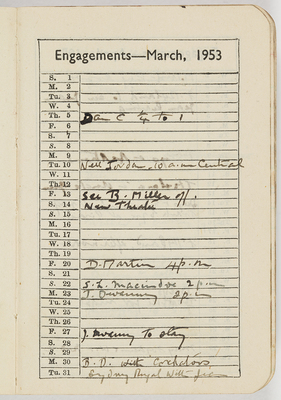 Engagements—March, 1953
S. 1
M. 2
Tu. 3
W. 4
Th. 5 Dan C to 1
F. 6
S. 7
S. 8
M. 9
Tu. 10 Nell 10 a.m Central
W. 11
Th. 12
F. 13 See B. Miller off.
S. 14 New Theatre
S. 15
M. 16
Tu. 17
W. 18
Th. 19
F. 20 D. Martin 4 p.m
S. 21
S. 22 2 p.m
M. 23
Tu. 24
W. 25
Th. 26
F. 27 to stay
S. 28
S. 29
M. 30 B. D. with
Tu. 31 Sydney Royal with